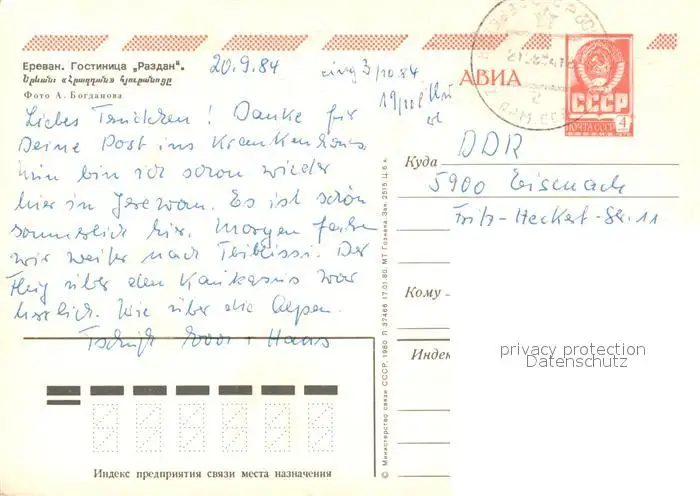 Ереван. Гостиница „Раздан“.
Երևան։ «Հրազդան» հյուրանոցը
Фото А. Богданова
20.9.84
eing 3/10.84
19/10
АВИА
СССР
ПОЧТА СССР 4
Liebes Trudchen! Danke für
Deine Post ins Krankenhaus
nun bin ich schon wieder
hier in Jerewan. Es ist schön
sommerlich hier. Morgen fahren
wir weiter nach Tbilissi. Der
Flug über den Kaukasus war
herrlich. Wie über die Alpen.
Tschüß + Hans
Куда DDR
5900 Eisenach
Fritz-Heckert-Str. 11
Кому
Индекс
privacy protection
Datenschutz
Индекс предприятия связи места назначения
© Министерство связи СССР, 1980 Л 37466 17.01.80. МТ Гознака. Зак. 2515. Ц. 6 к.